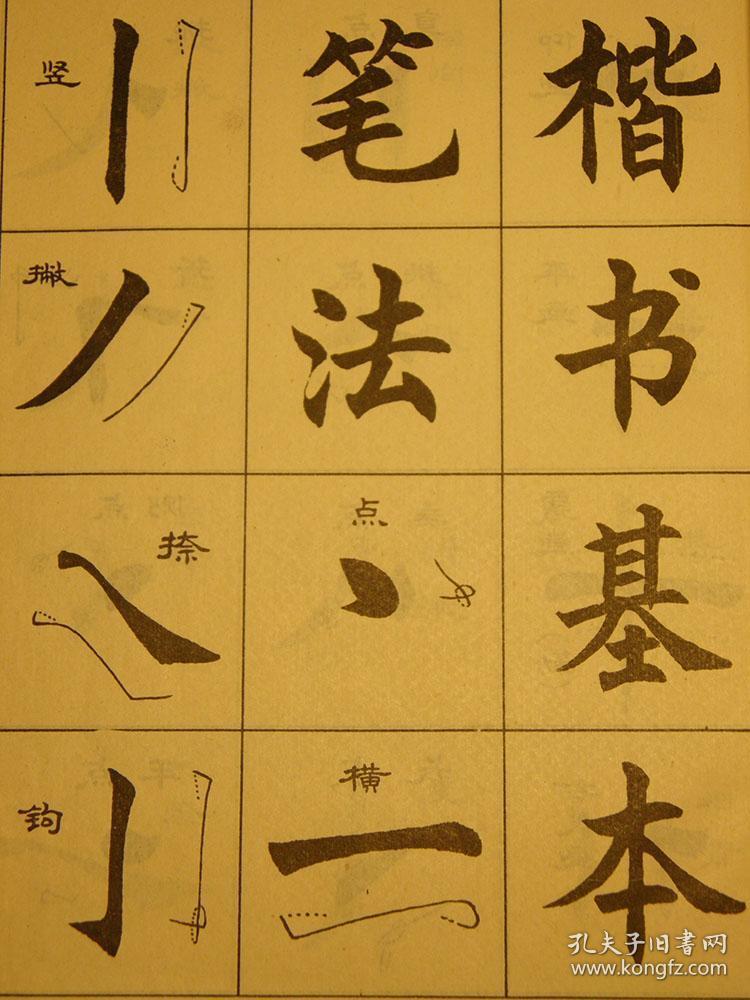 楷书基本
笔法
点
横
竖
撇
捺
钩
孔夫子旧书网
www.kongfz.com